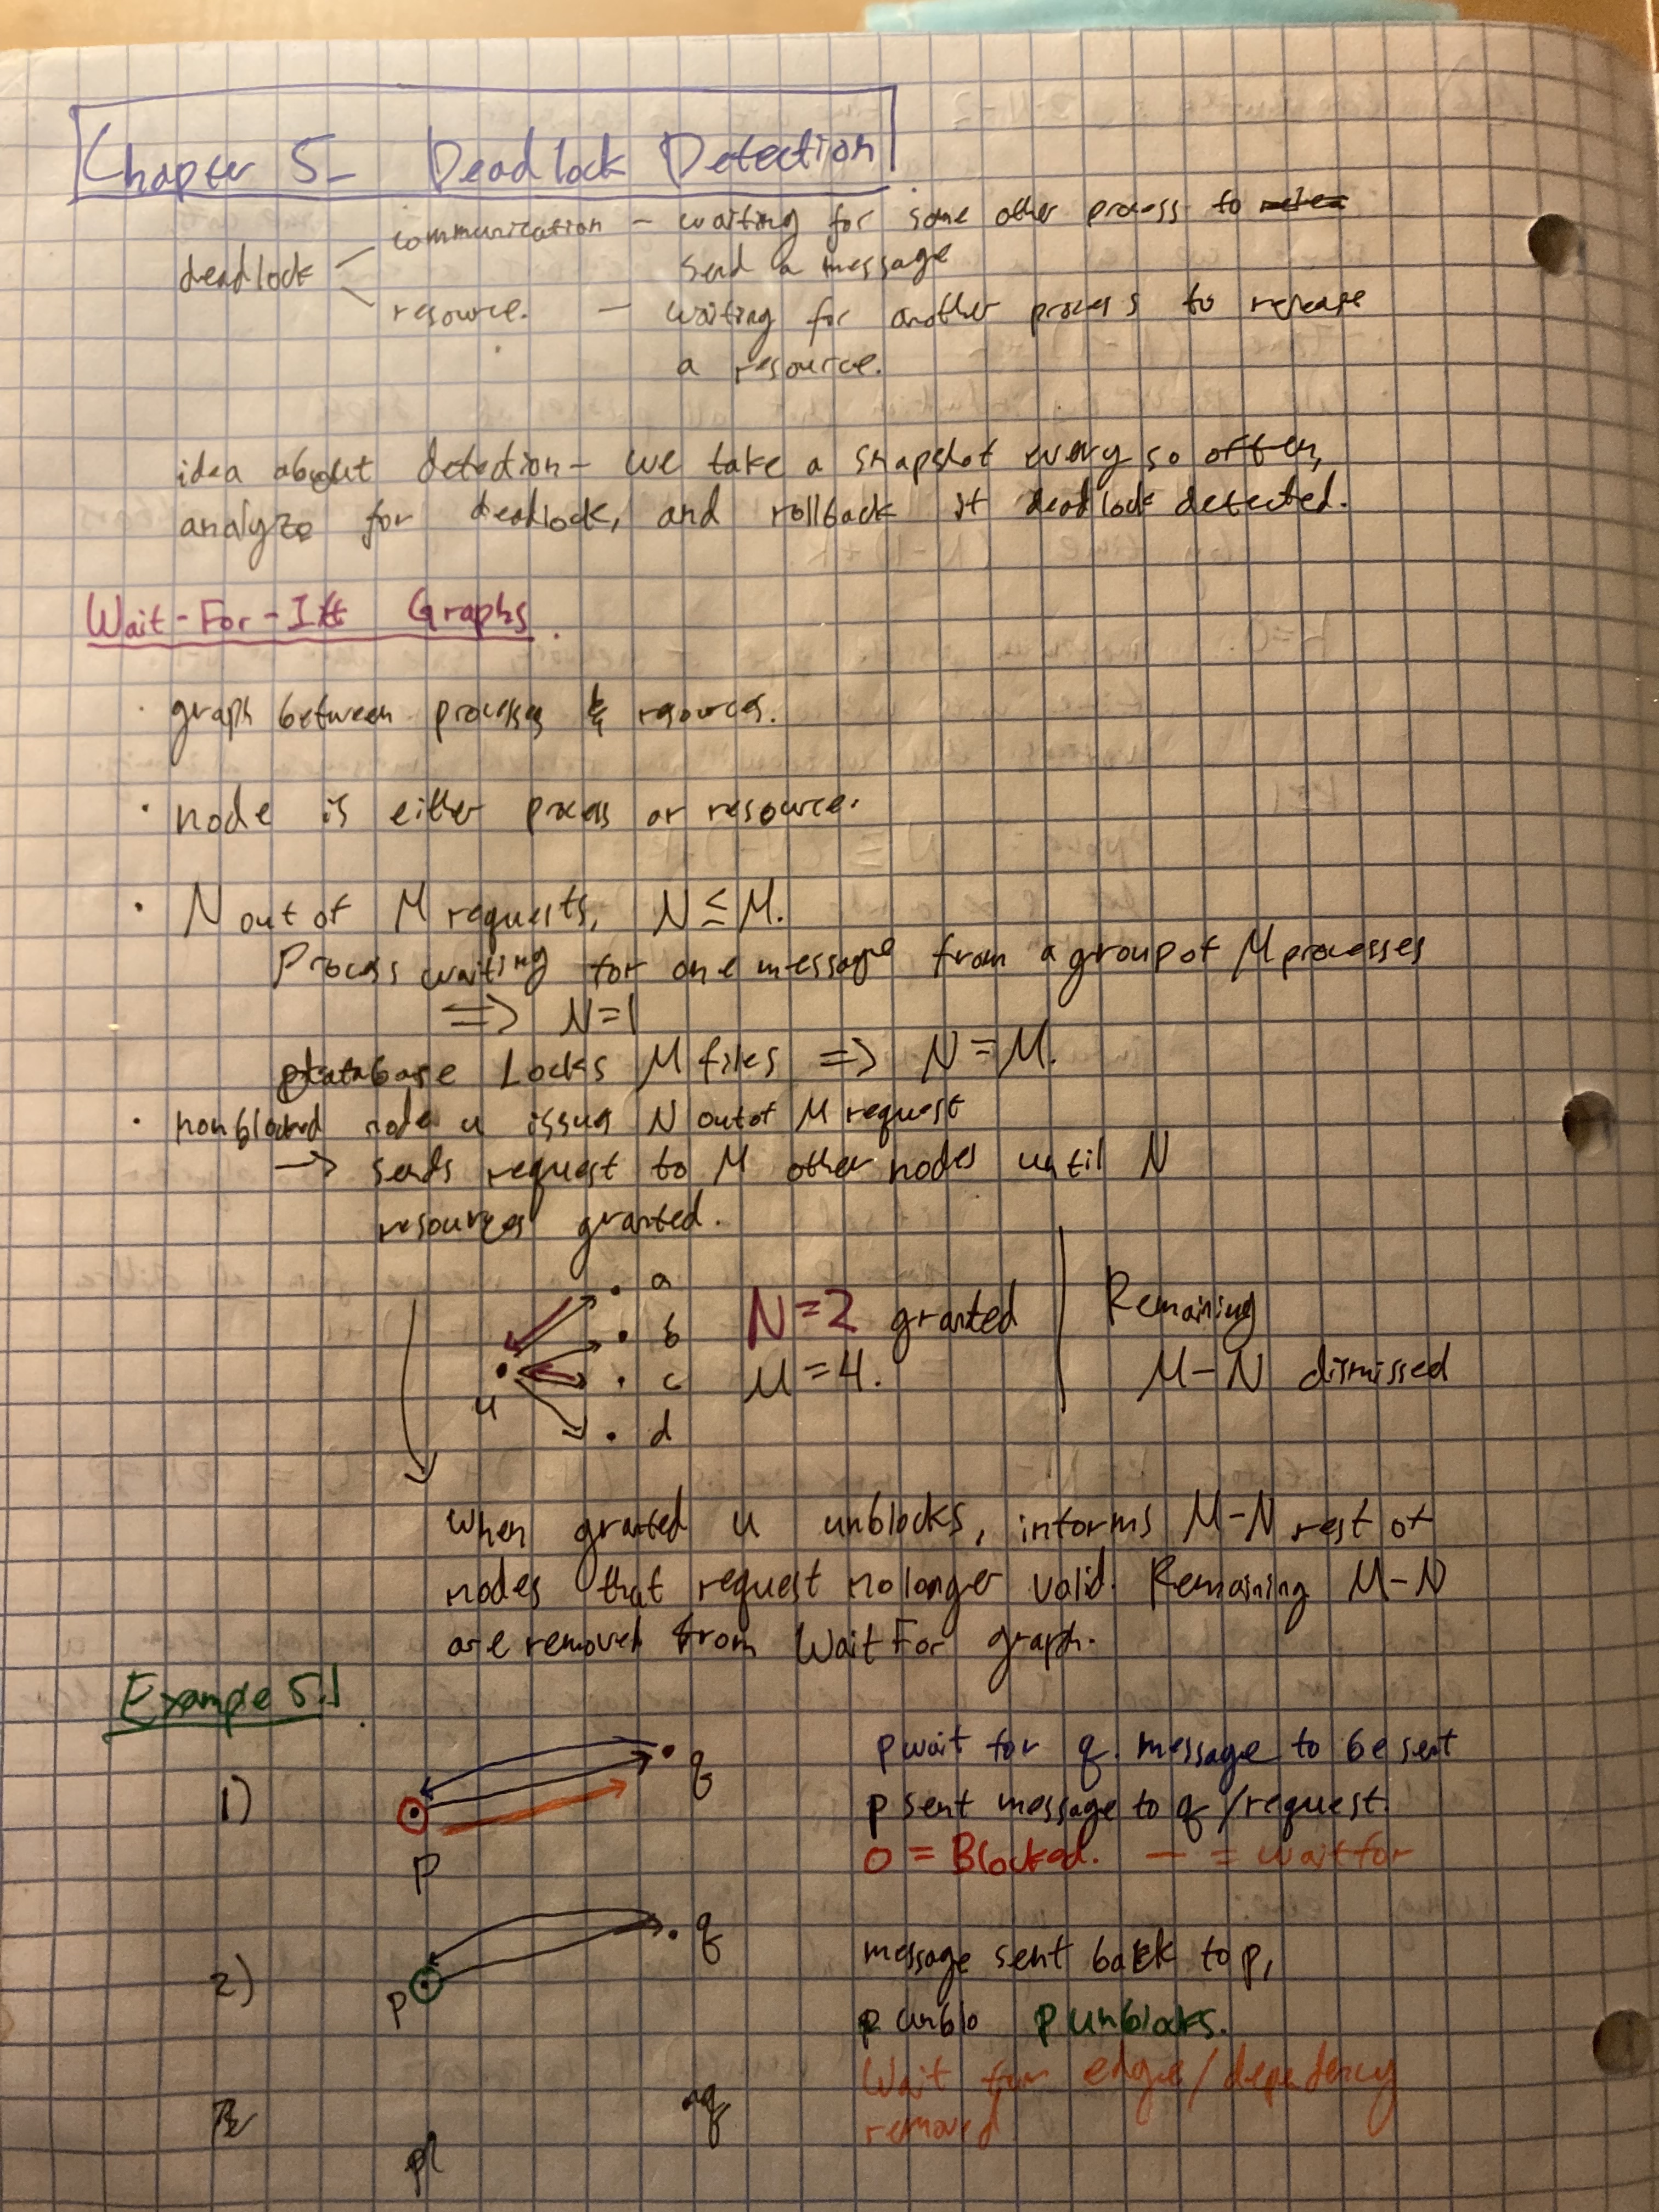 Chapter 5- Deadlock Detection
deadlock
communication - waiting for some other process to
send a message
resource. - waiting for another process to release
a resource.
idea about detection - we take a snapshot every so often,
analyze for deadlock, and rollback if deadlock detected.
Wait-For- Graphs.
· graph between processes & resources.
· node is either process or resource.
· N out of M requests, N ≤ M.
Process waiting for one message from a group of M processes
⇒ N=1
database Locks M files ⇒ N=M.
· nonblocked node u issues N out of M request
→ sends request to M other nodes until N
resources granted.
a
b
c
d
u
N=2 granted
M=4.
Remaining
M-N dismissed
when granted u unblocks, informs M-N rest of
nodes that request no longer valid. Remaining M-N
are removed from WaitFor graph.
Example 5.1
1)
p
q
p wait for q message to be sent
p sent message to q /request.
O = Blocked. — = wait for
2)
p
q
message sent back to p,
p unblo p unblocks.
Wait for edge/dependency
removed
q
p